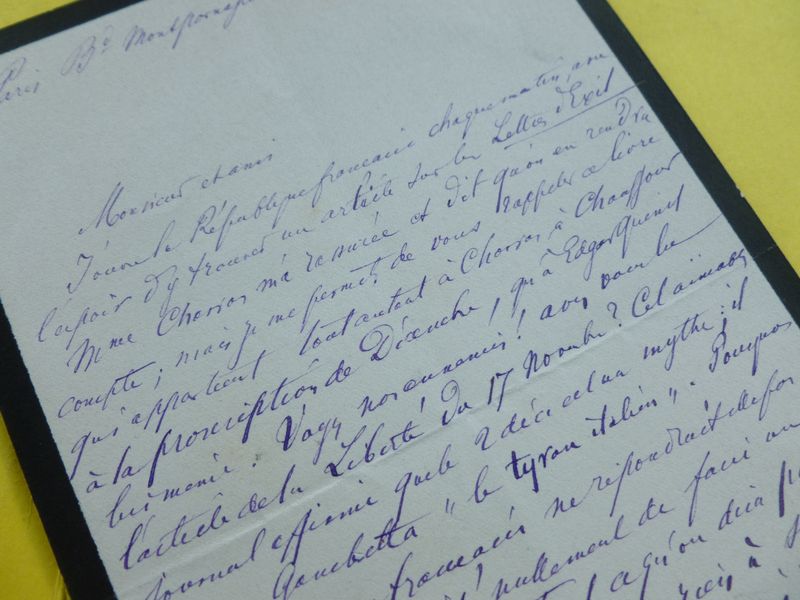 Paris Bd Montparnasse
Monsieur et ami
J'ouvre la République française chaque matin, avec
l'espoir d'y trouver un article sur les Lettres d'Exil
Mme Charras m'a rassurée et dit qu'on en rendra
compte; mais je me permets de vous rappeler ce livre
qui appartient tout autant à Charras à Chauffour
à la proscription de Décembre, qu'à Edgar Quinet
lui même. Voyez nos ennemis! avez vous lu
l'article de la Liberté du 17 Novembre? Cet aimable
journal affirme que le 2 déc est un mythe; il
Gambetta "le tyran italien". Pourquoi
français ne répondrait-elle pas
nullement de faire un
qu'on dira